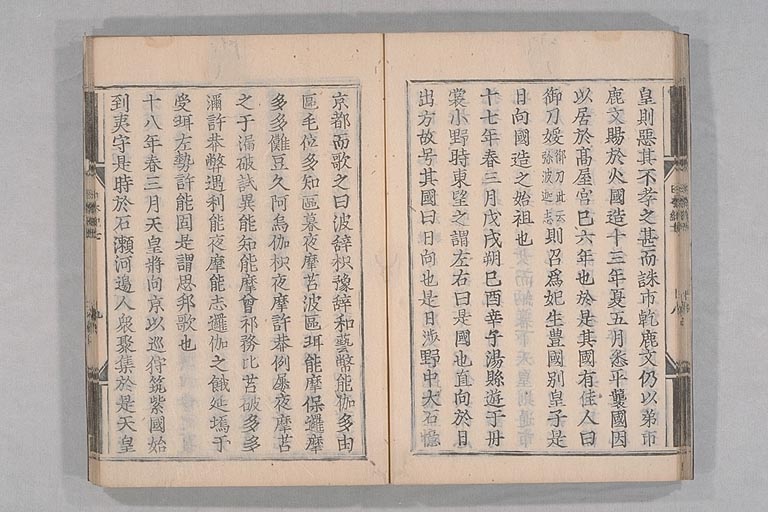 皇則惡其不孝之甚而誅市乾鹿文仍以弟市
鹿文賜於火國造十三年夏五月悉平襲國因
以居於髙屋宮已六年也於是其國有佳人曰
御刀媛御刀此云弥波迦志則召爲妃生豊國別皇子是
日向國造之始祖也
十七年春三月戊戌朔己酉幸子湯縣遊于丹
裳小野時東望之謂左右曰是國也直向於日
出方故号其國曰日向也是日渉野中大石憶
京都而歌之曰波辞枳豫辞和藝幣能伽多由
區毛位多知區暮夜摩苔波區珥能摩保邏摩
多多儺豆久阿烏伽枳夜摩許莽例屢夜摩苔
之于漏破試異能知能摩曾祁務比苔破多多
瀰許莽弊遇利能夜摩能志邏伽之餓延塢于
受珥左勢許能固是謂思邦歌也
十八年春三月天皇將向京以巡狩筑紫國始
到夷守是時於石瀬河邉人衆聚集於是天皇